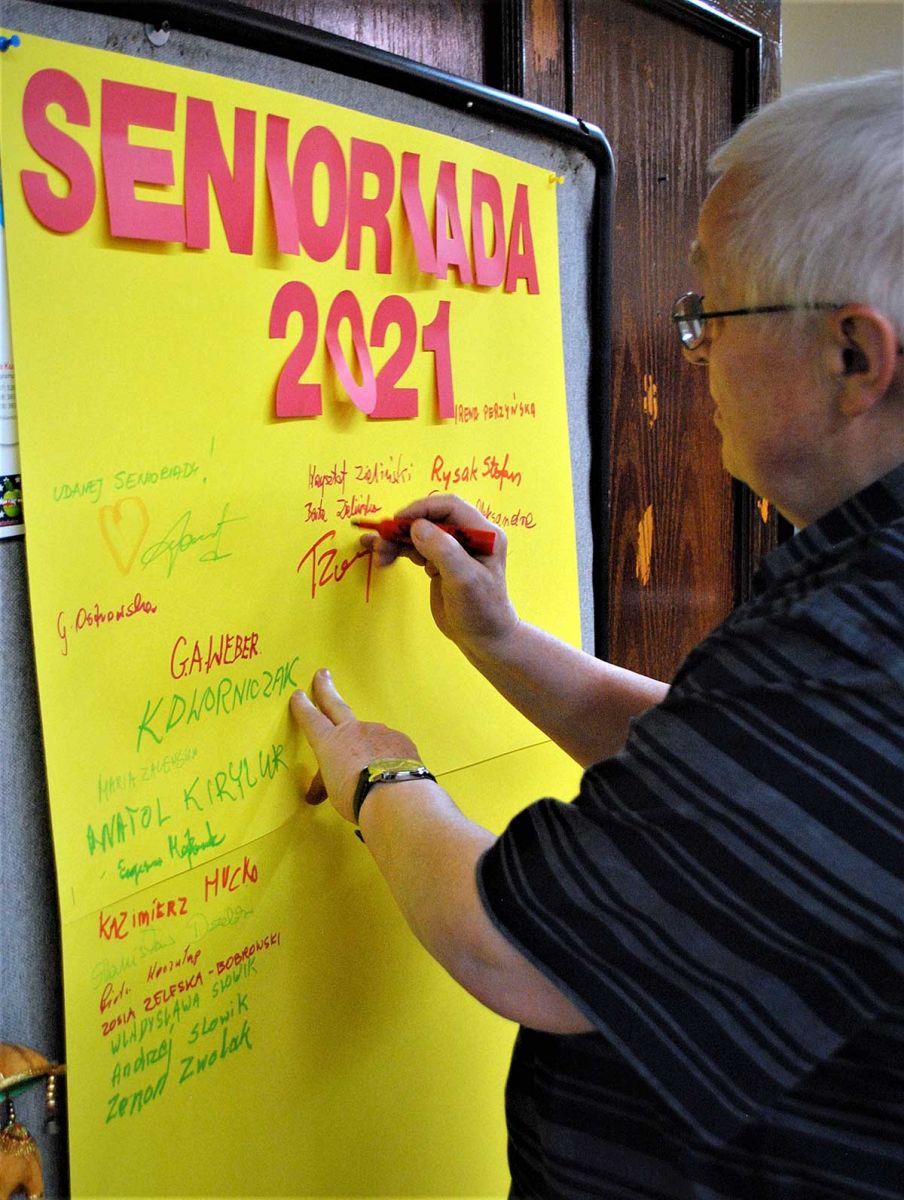 SENIORIADA
2021
IRENA PERZYŃSKA
UDANEJ SENIORIADY!
Krzysztof Zieliński
Rysak Stefan
Zielińska
Aleksandra
G. Ostrowska
G.A.WEBER
K DWORNICZAK
MARIA ZALEWSKA
ANATOL KIRYLUK
Eugenia
KAZIMIERZ MUCKO
Stanisław
Piotr
ZOSIA ZELESKA-BOBROWSKI
WŁADYSŁAWA SŁOWIK
Andrzej Słowik
Zenon Zwolak